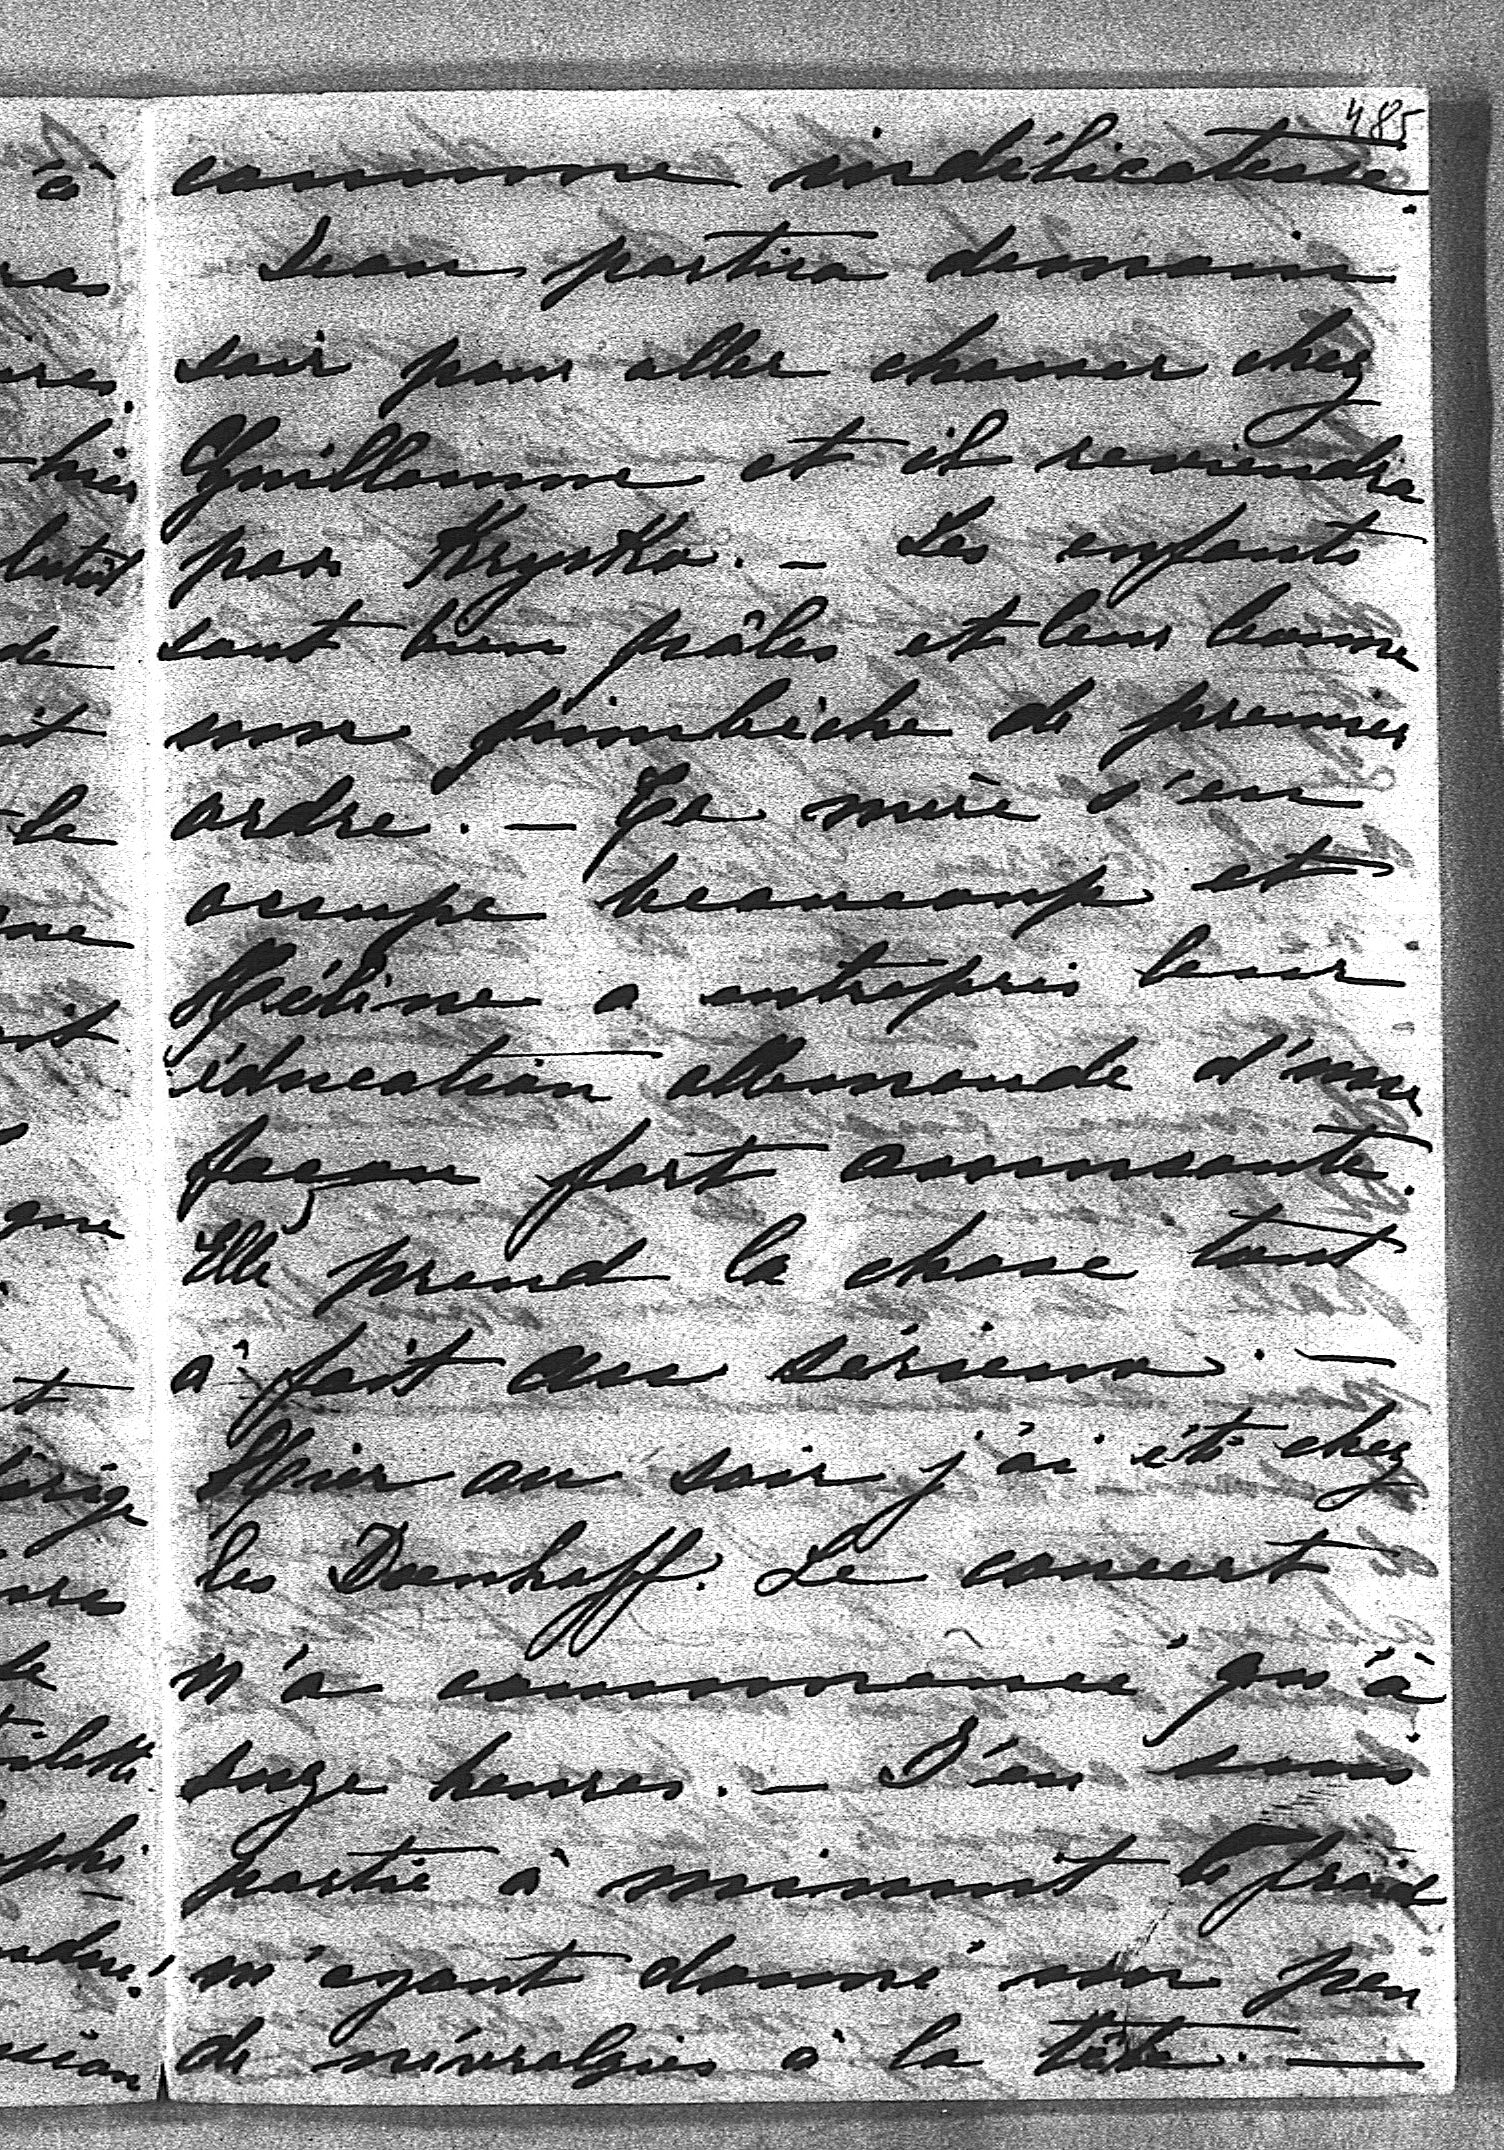 485
comme indélicatesse.
Jean partira demain
soir pour aller chasser chez
Guillaume et il reviendra
par Krysko. — Les enfants
sont bien pâles et leur bonne
une pimbêche de premier
ordre. — Ta mère s'en
occupe beaucoup et
Héline a entrepris leur
éducation allemande d'une
façon fort amusante.
Elle prend la chose tout
à fait au sérieux. —
Hier au soir j'ai été chez
les Dœnhoff. Le concert
n'a commencé qu'à
onze heures. — J'en suis
partie à minuit le froid
m'ayant donné un peu
de névralgies à la tête. —